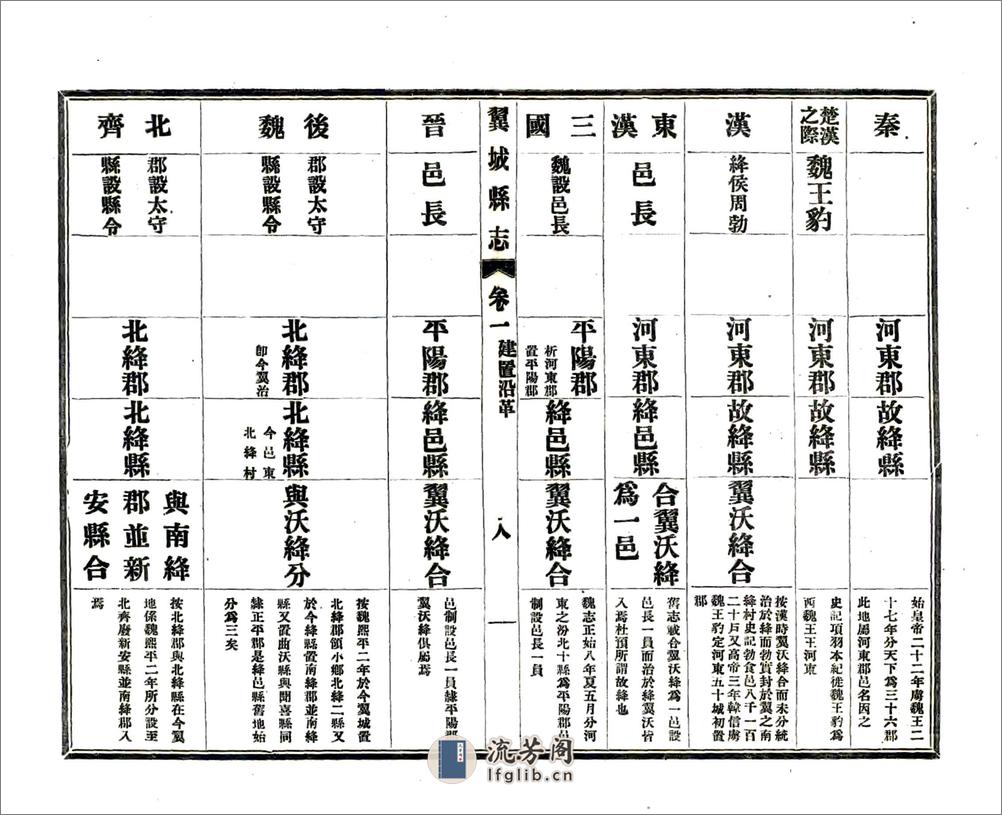 秦
河東郡
故絳縣
始皇帝二十二年虜魏王二
十七年分天下爲三十六郡
此地屬河東郡邑名因之
楚漢
之際
魏王豹
河東郡
故絳縣
史記項羽本紀徙魏王豹爲
西魏王王河東
漢
絳侯周勃
河東郡
故絳縣
翼沃絳合
按漢時翼沃絳合而未分統
治於絳而勃實封於翼之南
絳村史記勃食邑八千一百
二十戶又高帝三年韓信虜
魏王豹定河東五十城初置
郡
東漢
邑長
河東郡
絳邑縣
合翼沃絳
爲一邑
舊志載合翼沃絳爲一邑設
邑長一員而治於絳翼沃皆
入焉杜預所謂故絳也
三國
魏設邑長
平陽郡
析河東郡
置平陽郡
絳邑縣
翼沃絳合
魏志正始八年夏五月分河
東之汾北十縣爲平陽郡邑
制設邑長一員
翼城縣志
卷一
建置沿革
八
晉
邑長
平陽郡
絳邑縣
翼沃絳合
邑制設邑長一員隸平陽郡
翼沃絳俱屬焉
後魏
郡設太守
縣設縣令
北絳郡
卽今翼治
北絳縣
今邑東
北絳村
與沃絳分
按魏熙平二年於今翼城置
北絳郡領小鄉北絳二縣又
於今絳縣置南絳郡並南絳
縣又置曲沃縣與聞喜縣同
隸正平郡是絳邑縣舊地始
分爲三矣
北齊
郡設太守
縣設縣令
北絳郡
北絳縣
與南絳
郡並新
安縣合
按北絳郡與北絳縣在今翼
地係魏熙平二年所分設至
北齊廢新安縣並南絳郡入
焉
流芳阁
lfglib.cn